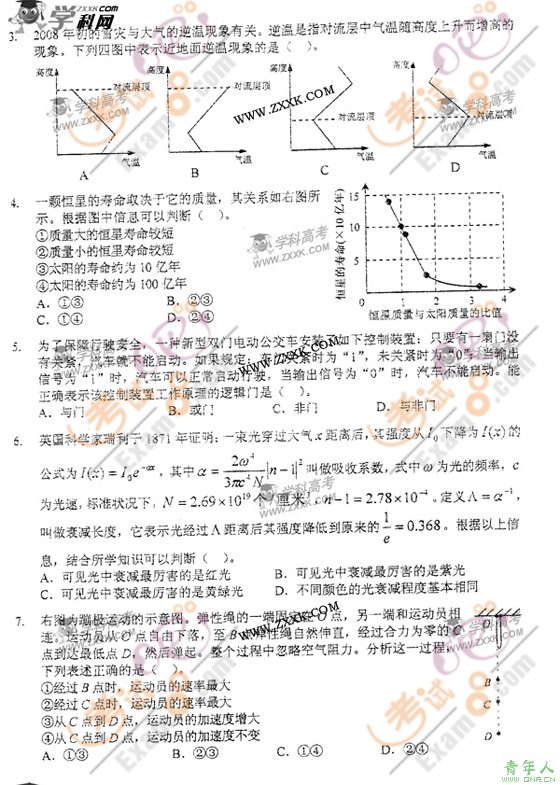 学科网
WWW.ZXXK.COM
3. 2008年初的雪灾与大气的逆温现象有关。逆温是指对流层中气温随高度上升而增高的
现象。下列四图中表示近地面逆温现象的是（ ）。
高度 对流层顶 气温 A
高度 对流层顶 气温 B
高度 对流层顶 气温 C
高度 对流层顶 气温 D
4. 一颗恒星的寿命取决于它的质量，其关系如右图所
示。根据图中信息可以判断（ ）。
①质量大的恒星寿命较短
②质量小的恒星寿命较短
③太阳的寿命约为10亿年
④太阳的寿命约为100亿年
A．①③ B．②③
C．①④ D．②④
恒星的寿命(×10亿年)
15
12
9
6
3
0 1 2 3 4
恒星质量与太阳质量的比值
5. 为了保障行驶安全，一种新型双门电动公交车安装了如下控制装置：只要有一扇门没
有关紧，汽车就不能启动。如果规定：车门关紧时为“1”，未关紧时为“0”；当输出
信号为“1”时，汽车可以正常启动行驶，当输出信号为“0”时，汽车不能启动。能
正确表示该控制装置工作原理的逻辑门是（ ）。
A．与门 B．或门 C．非门 D．与非门
6. 英国科学家瑞利于1871年证明：一束光穿过大气x距离后，其强度从I₀下降为I(x)的
公式为I(x)=I₀e^{-αx}，其中α=2ω⁴/3πc⁴N |n−1|²叫做吸收系数，式中ω为光的频率，c
为光速，标准状况下，N=2.69×10¹⁹个/厘米³，n−1=2.78×10⁻⁴。定义Λ=α⁻¹，
叫做衰减长度，它表示光经过Λ距离后其强度降低到原来的1/e=0.368。根据以上信
息，结合所学知识可以判断（ ）。
A．可见光中衰减最厉害的是红光 B．可见光中衰减最厉害的是紫光
C．可见光中衰减最厉害的是黄绿光 D．不同颜色的光衰减程度基本相同
7. 右图为蹦极运动的示意图。弹性绳的一端固定在O点，另一端和运动员相
连。运动员从O点自由下落，至B点弹性绳自然伸直，经过合力为零的C
点到达最低点D，然后弹起。整个过程中忽略空气阻力。分析这一过程，
下列表述正确的是（ ）。
①经过B点时，运动员的速率最大
②经过C点时，运动员的速率最大
③从C点到D点，运动员的加速度增大
④从C点到D点，运动员的加速度不变
A．①③ B．②③ C．①④ D．②④
O
B
C
D
学科高考
WWW.ZXXK.COM
考试
Exam8.com
青年人
WWW.QNR.CN